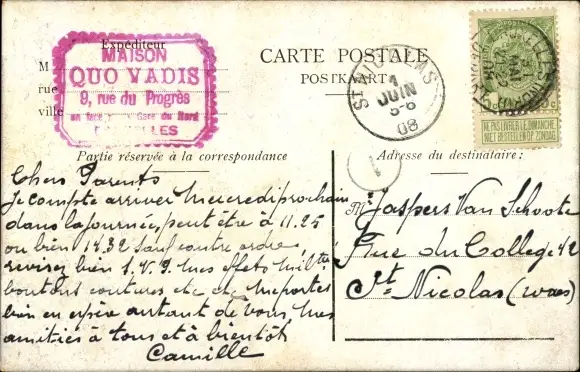 Expéditeur
M
rue
ville
MAISON
QUO VADIS
9, rue du Progrès
en face Gare du Nord
BRUXELLES
CARTE POSTALE
POSTKAART
ST NICOLAS
1
JUIN
5-6
08
NE PAS LIVRER LE DIMANCHE
NIET BESTELLEN OP ZONDAG
1
Partie réservée à la correspondance
Adresse du destinataire:
Chers Parents
Je compte arriver Mercredi prochain
dans la journée, peut être à 11.25
ou bien 14.32 sauf contre ordre
revisez bien S.V.P. mes effets milres
boutons coutures etc etc. Me portes
bien en espère autant de vous, mes
amitiés à tous et à bientôt
Camille
M Jaspers Van Schoote
Rue du College 42
St Nicolas (Waes)